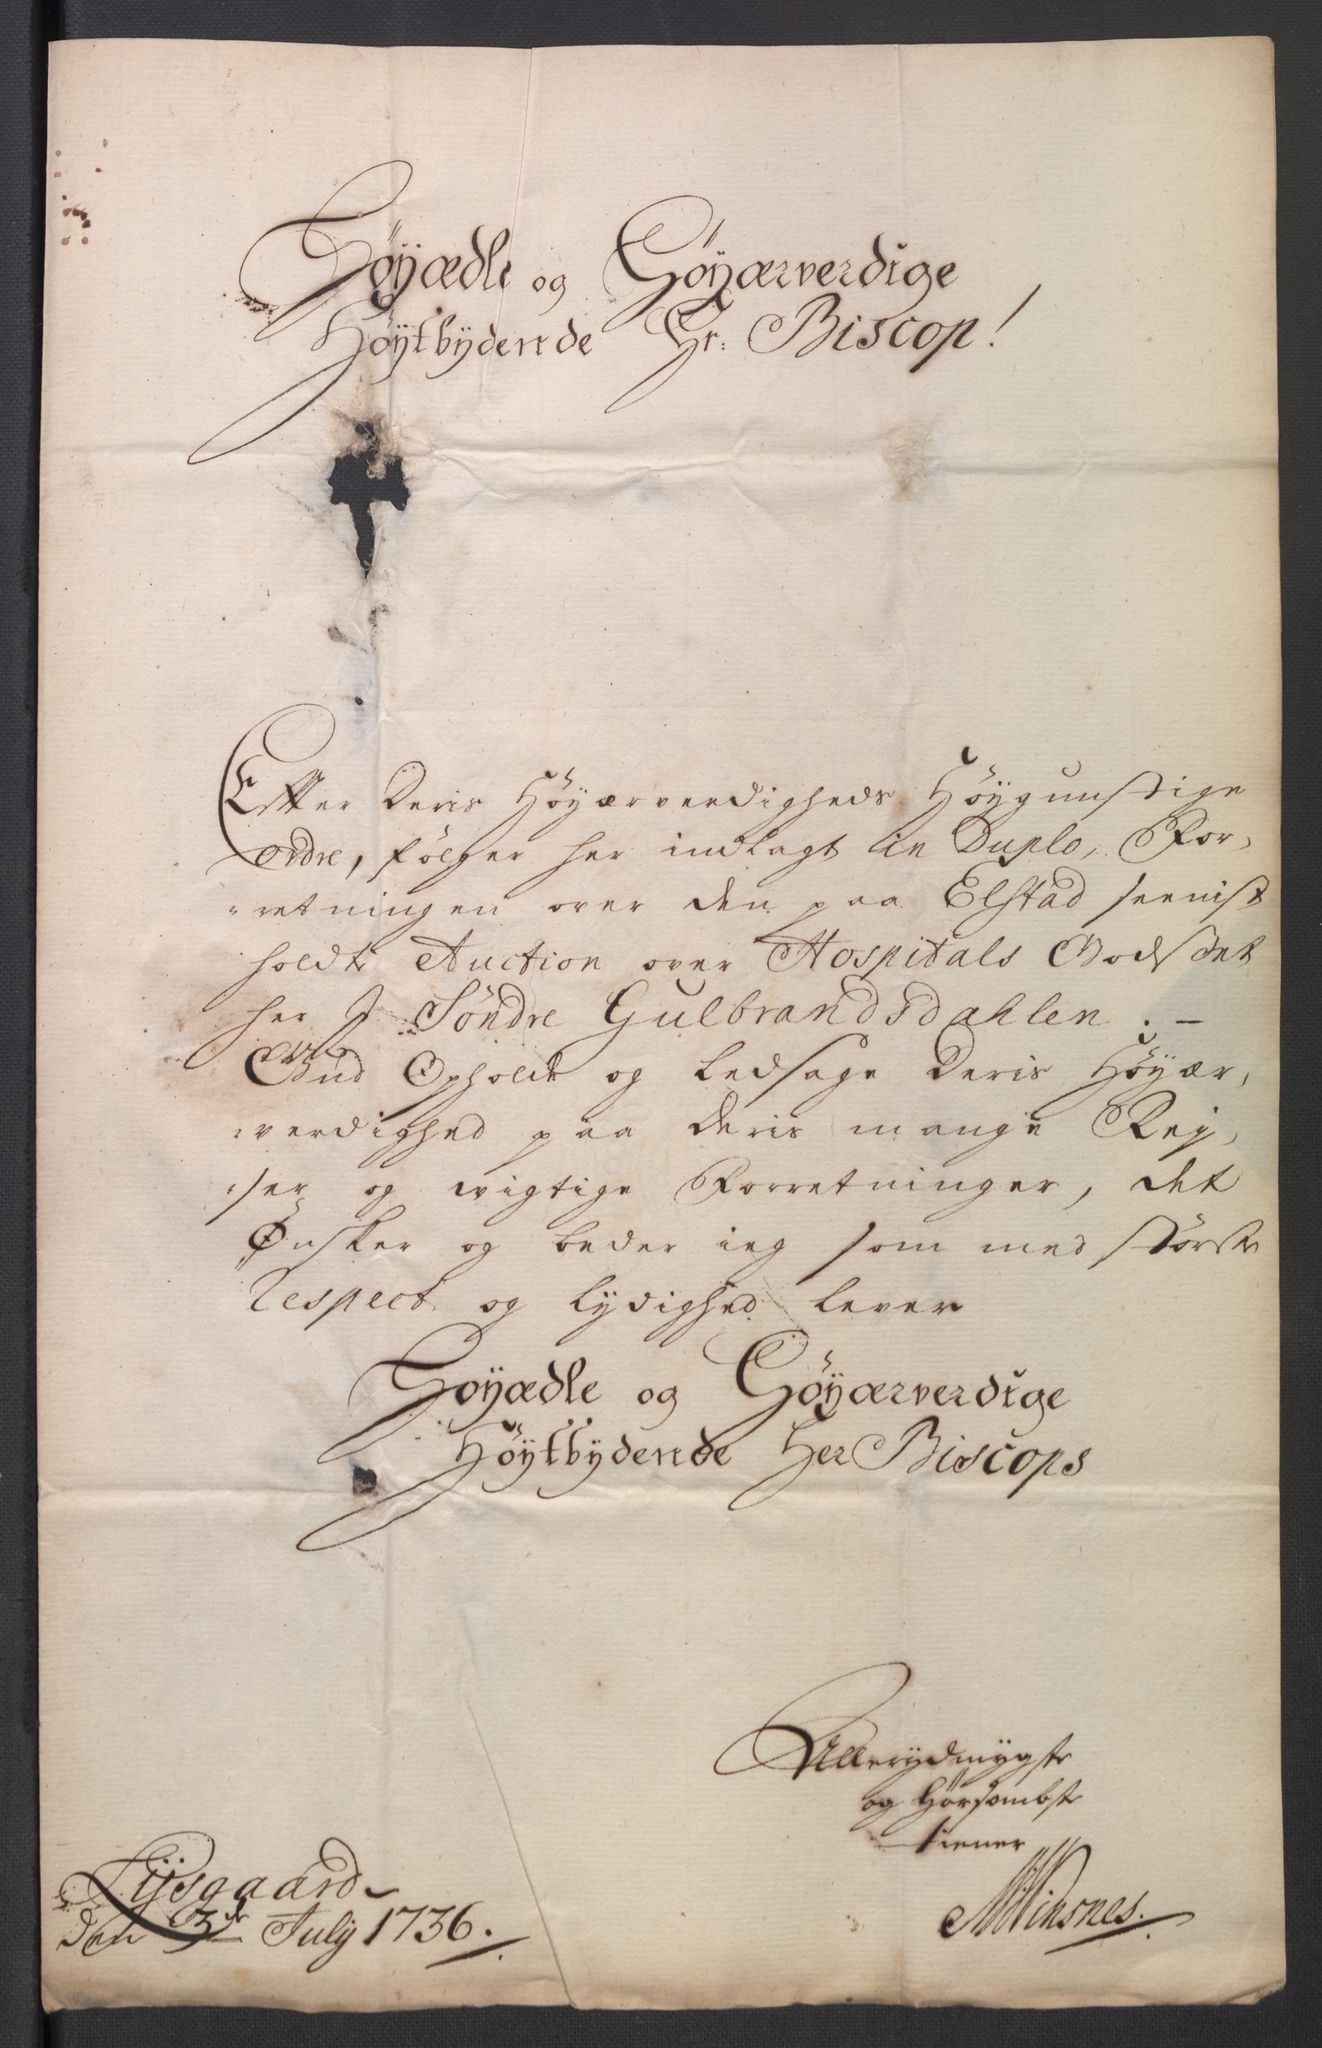 Höyædle og Höyærverdige
Höytbydende Hr: Biscop!
Effter Deris Höyærverdigheds Höygunstige
Ordre, fölger her indlagt in Duplo, For-
-retningen over den paa Elstad seenist
holdte Auction over Hospitals Godset
her J Söndre Gulbrandsdahlen. -
Gud Opholde og Ledsage Deris Höyær-
-verdighed paa deris mange Rej-
-ser og wigtige Forretninger, det
Ønsker og beder ieg som med störste
Respect og lydighed lever
Höyædle og Höyærverdige
Höytbydende Her Biscops
Allerydmygste
og Hörsombste
tiener
Lysgaard
den 3de July 1736.
MWinsnes.